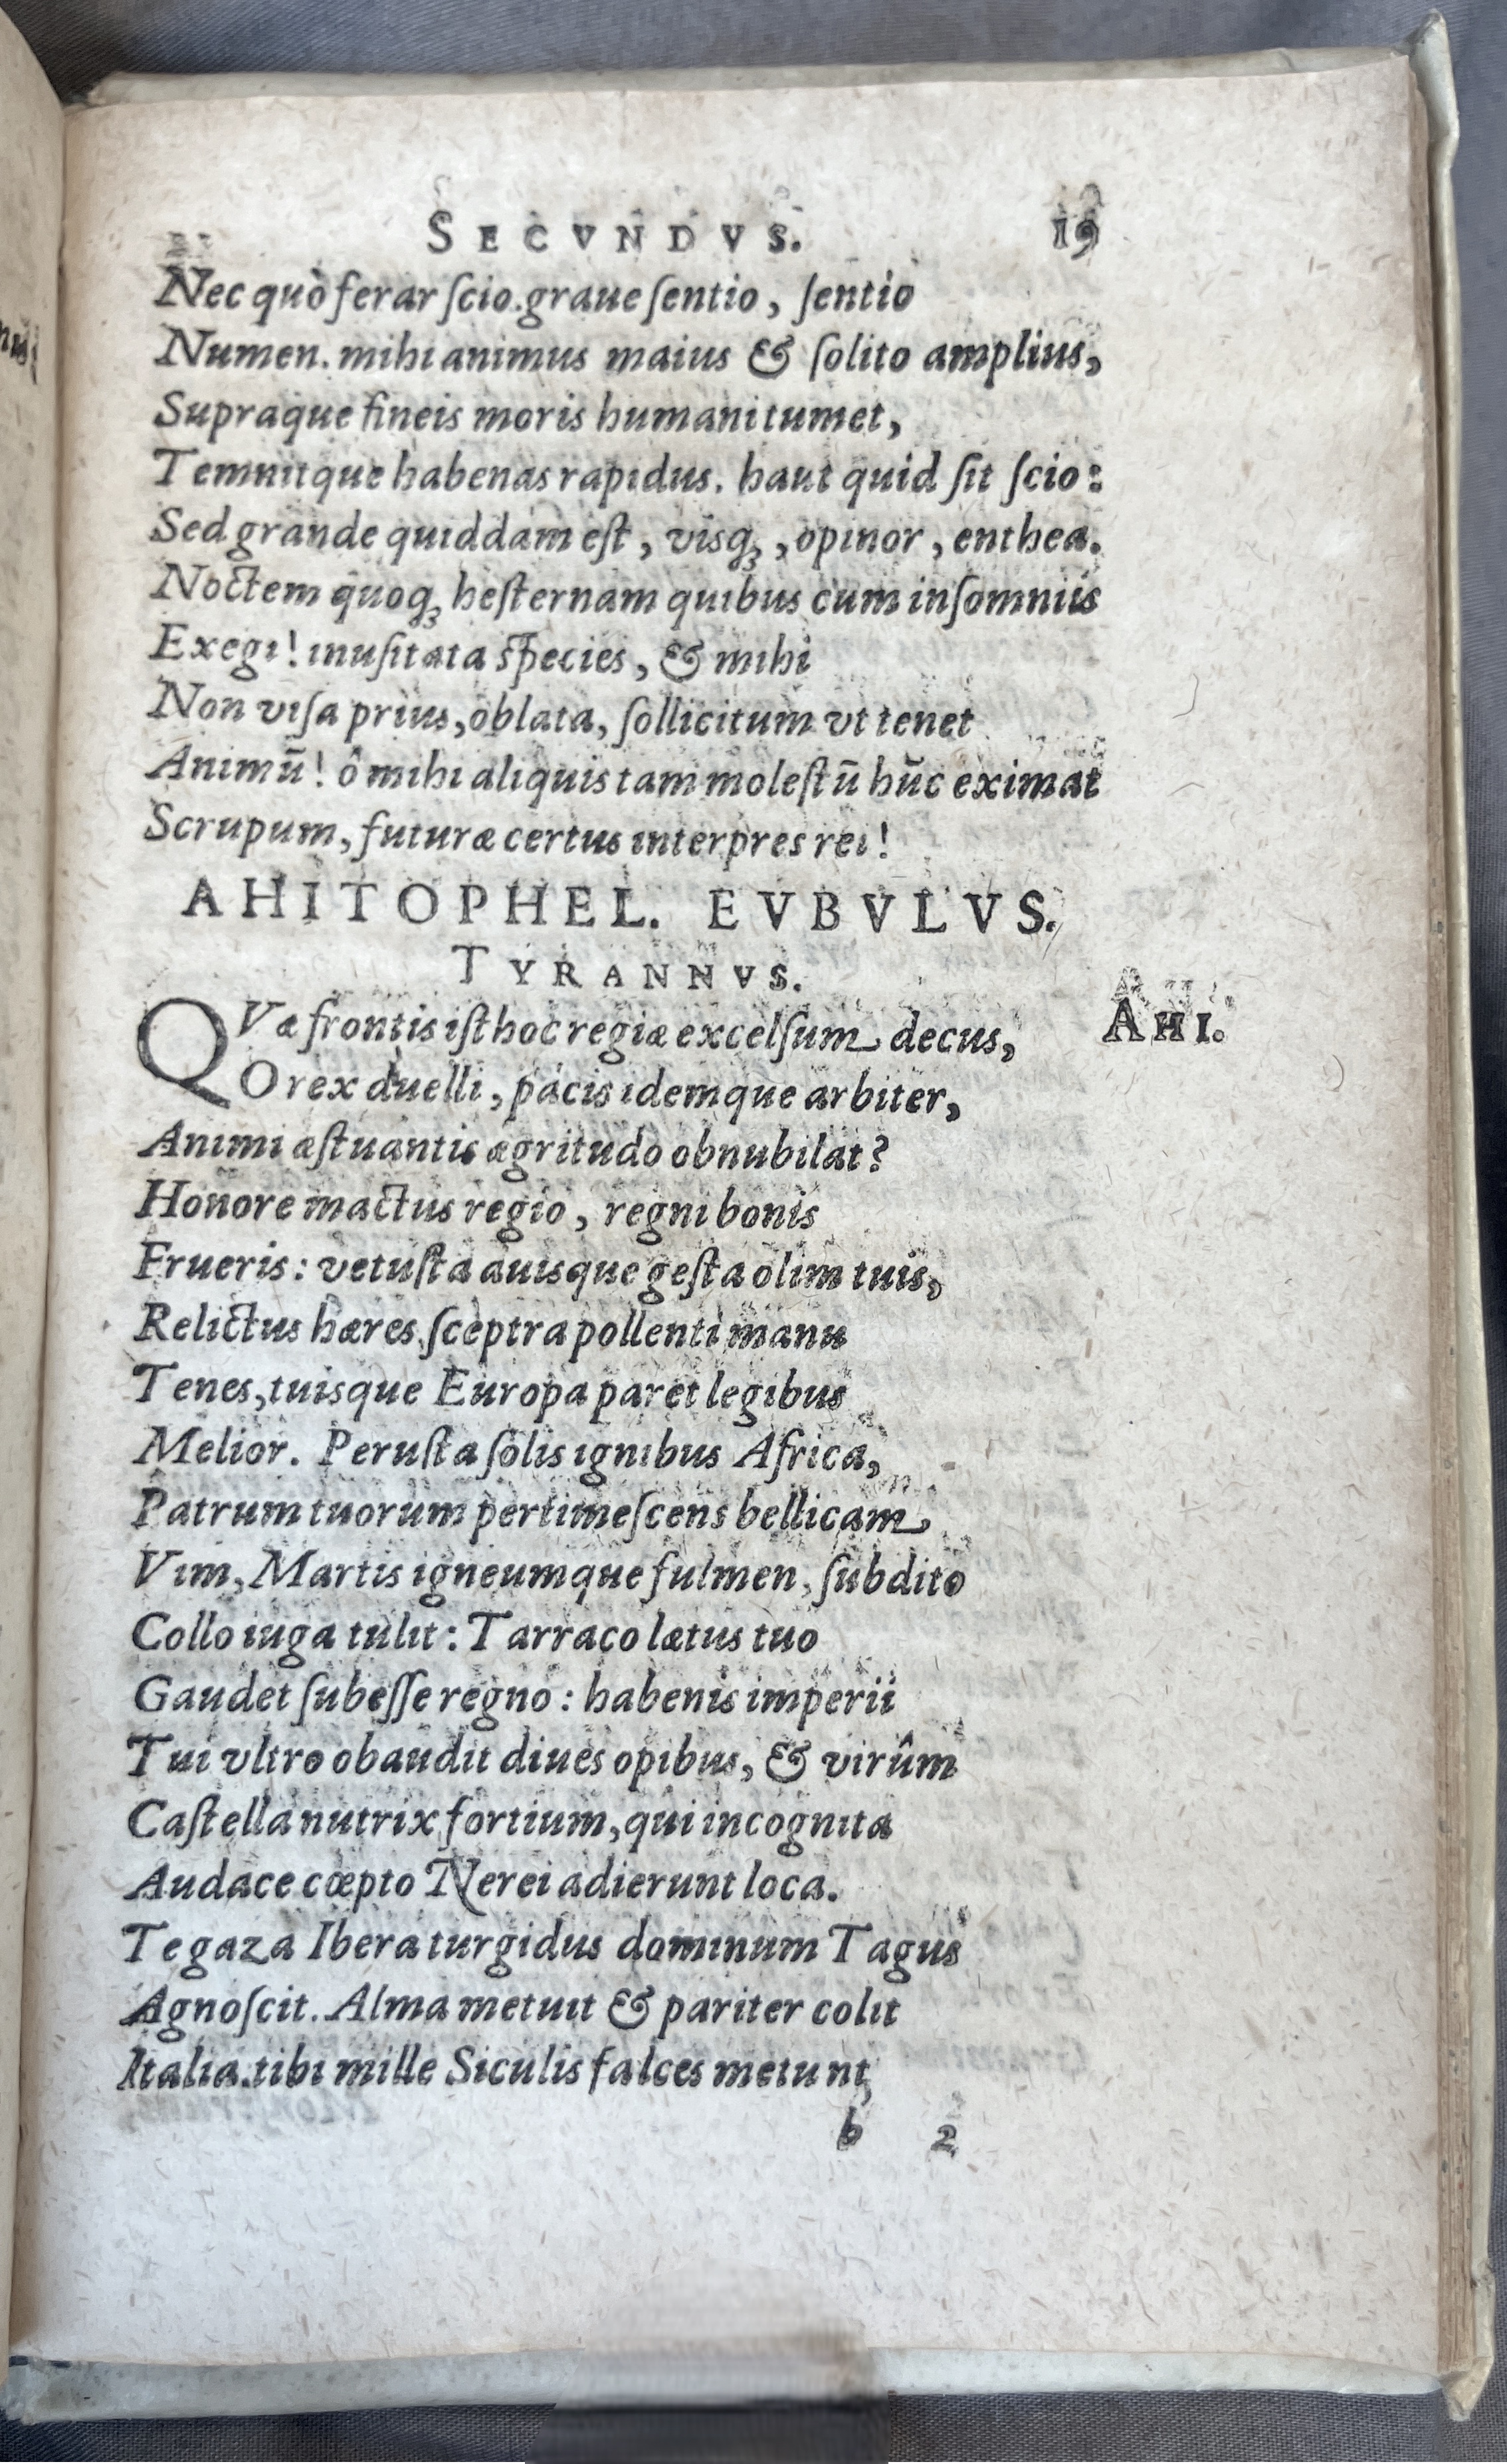 SECVNDVS. 19
Nec quò ferar ſcio. graue ſentio, ſentio
Numen. mihi animus maius & ſolito amplius,
Supraque fineis moris humani tumet,
Temnitque habenas rapidus. haut quid ſit ſcio:
Sed grande quiddam eſt, visq́ꝫ, opinor, enthea.
Noctem quoqꝫ heſternam quibus cum inſomniis
Exegi! inuſitata species, & mihi
Non viſa prius, oblata, ſollicitum vt tenet
Animū! ô mihi aliquis tam moleſtū hūc eximat
Scrupum, futuræ certus interpres rei!
AHITOPHEL. EVBVLVS.
TYRANNVS.
QVæ frontis iſthoc regiæ excelſum decus, AHI.
O rex duelli, pacis idemque arbiter,
Animi æſtuantis ægritudo obnubilat?
Honore mactus regio, regni bonis
Frueris: vetuſta auisque geſta olim tuis,
Relictus hæres ſceptra pollenti manu
Tenes, tuisque Europa paret legibus
Melior. Peruſta ſolis ignibus Africa,
Patrum tuorum pertimeſcens bellicam
Vim, Martis igneumque fulmen, ſubdito
Collo iuga tulit: Tarraco lætus tuo
Gaudet ſubeſſe regno: habenis imperii
Tui vltro obaudit diues opibus, & virûm
Caſtella nutrix fortium, qui incognita
Audace cœpto Nerei adierunt loca.
Te gaza Ibera turgidus dominum Tagus
Agnoſcit. Alma metuit & pariter colit
Italia. tibi mille Siculis falces metunt,
b 2